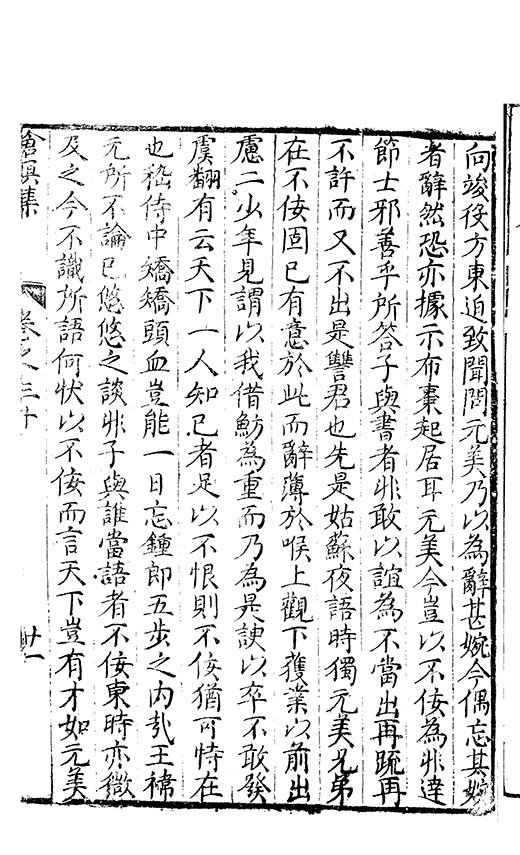 向竣役方東迫致聞問元美乃以為辭甚婉今偶忘其婉
者辭然恐亦據示布棗起居耳元美今豈以不佞為非達
節士邪善乎所答子與書者非敢以誼為不當出再疏再
不許而又不出是讐君也先是姑蘇夜語時獨元美兄弟
在不佞固已有意於此而辭薄於喉上觀下獲業以前出
慮二少年見謂以我借魴為重而乃為是諛以卒不敢發
虞翻有云天下一人知已者足以不恨則不佞猶可恃在
也嵇侍中矯矯頭血豈能一日忘鍾郎五步之内哉王褘
元所不論已悠悠之談非子與誰當語者不佞東時亦微
及之今不識所語何狀以不佞而言天下豈有才如元美
滄溟集 卷之三十 廿一